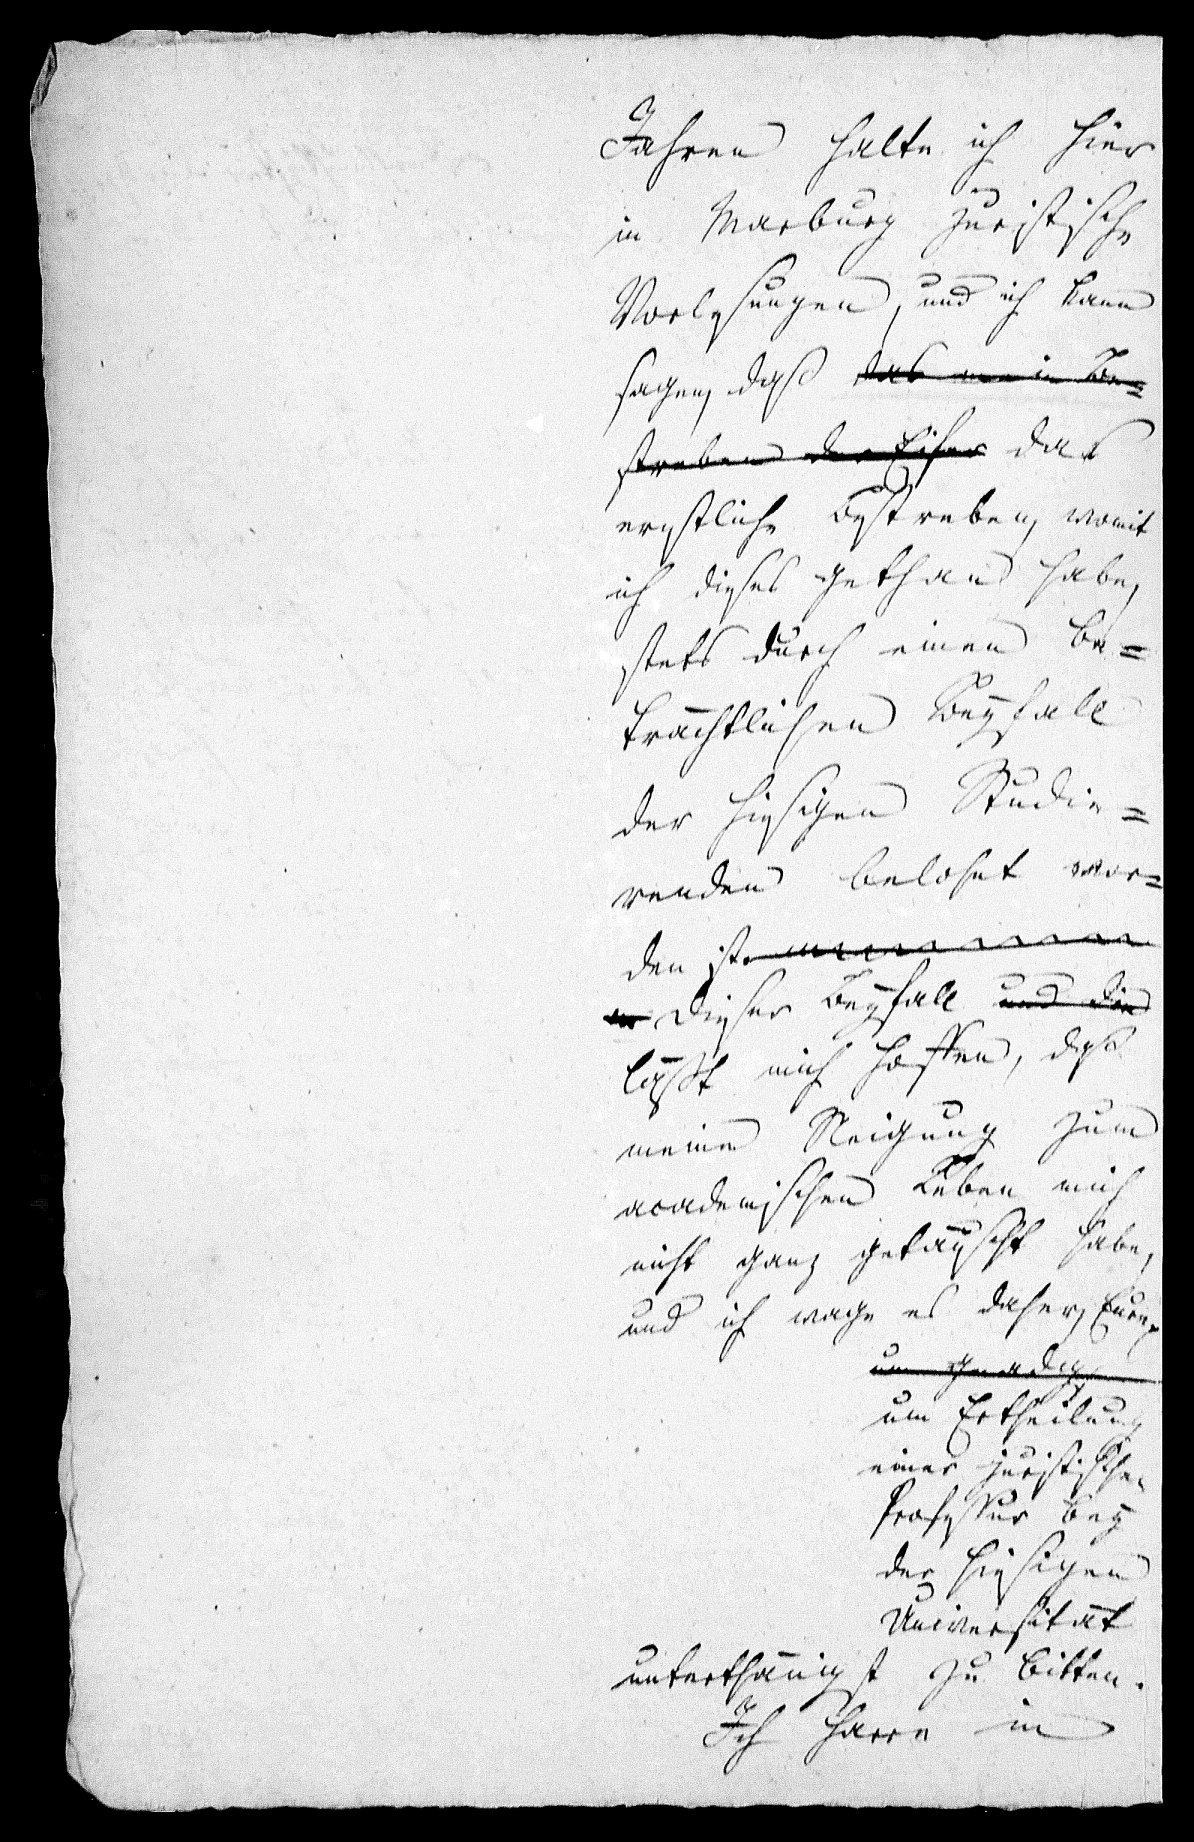 Jahren halte ich hier
in Marburg juristische
Vorlesungen, und ich kann
sagen, daß das mein Be=
streben der Eifer das
ernstliche Bestreben, womit
ich dieses gethan habe,
stets durch einen be=
trächtlichen Beyfall
der hiesigen Studie=
renden belohnt wor=
den ist.
Dieser Beyfall und die
läßt mich hoffen, daß
meine Neigung zum
academischen Leben mich
nicht ganz getäuscht habe,
und ich wage es daher, Eure
um gnädigst
um Ertheilung
einer juristischen
Professur bey
der hiesigen
Universität
unterthänigst zu bitten.
Ich harre in